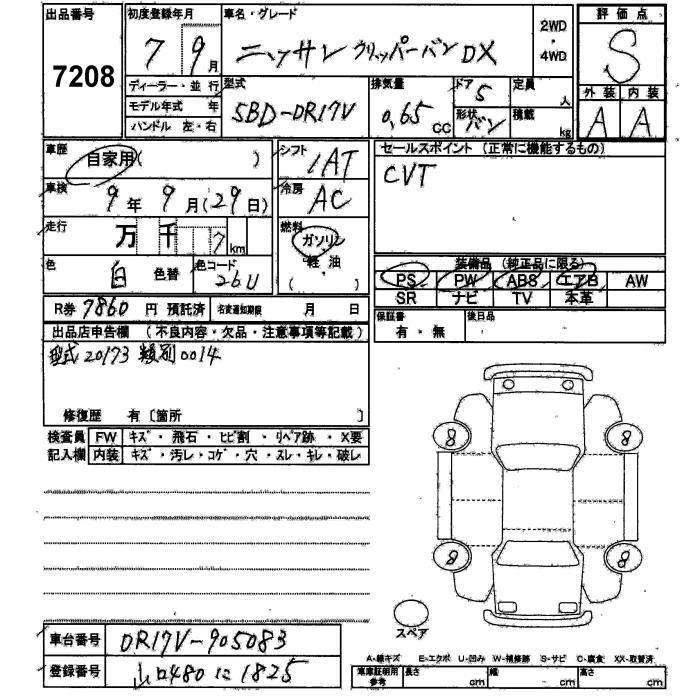 出品番号
7208
初度登録年月
7 9月
車名・グレード
ニッサン クリッパーバン DX
2WD
・
4WD
評価点
S
ディーラー・並行
モデル年式 年
ハンドル 左・右
型式
5BD-DR17V
排気量
0.65
CC
ドア
5
形状
バン
定員
人
積載
kg
外装 内装
A A
車歴
自家用( )
シフト
IAT
セールスポイント (正常に機能するもの)
CVT
車検
9年 9月(29日)
冷房
AC
走行
万 千 7 km
燃料
ガソリン
・
軽・油
( )
色
白 色替
色コード
26U
装備品 (純正品に限る)
PS PW ABS エアB AW
SR ナビ TV 本革
R券 7860 円 預託済 名変通知期限 月 日
保証書
有・無
後日品
出品店申告欄 (不良内容・欠品・注意事項等記載)
型式 20173 類別 0014
修復歴 有〔箇所 〕
検査員
記入欄
FW キズ・飛石・ヒビ割・リペア跡・X要
内装 キズ・汚レ・コゲ・穴・スレ・キレ・破レ
8 8
8 8
スペア
車台番号
DR17V-905083
登録番号
山口480に1825
A-線キズ E-エクボ U-凹み W-補修跡 S-サビ C-腐食 XX-取替済
車庫証明用
参考
長さ cm 幅 cm 高さ cm